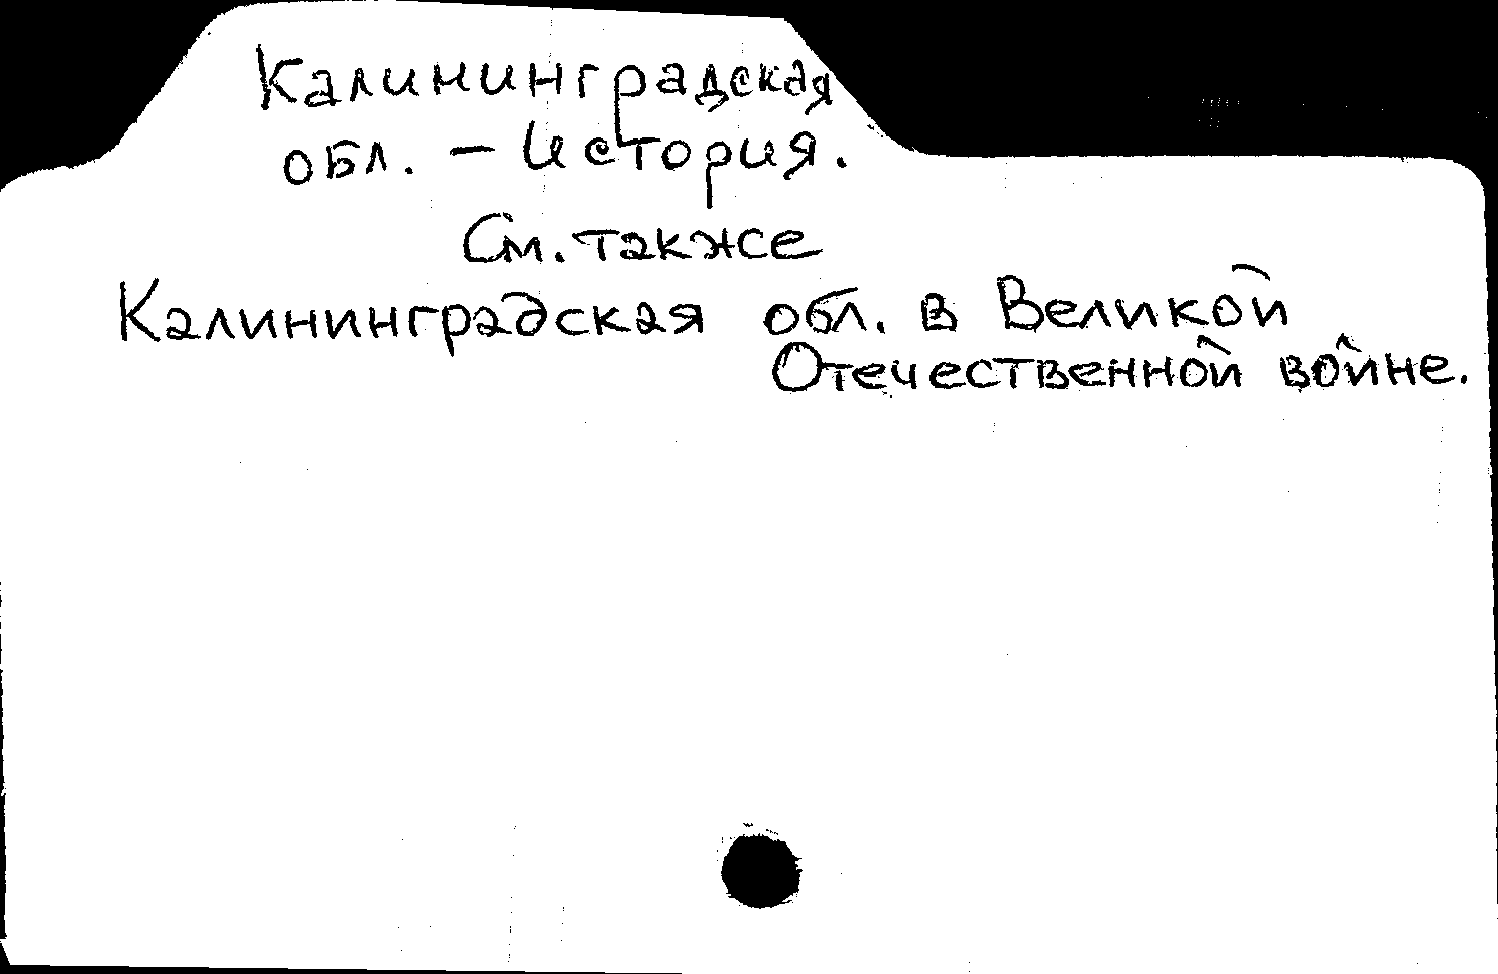 Калининградская
обл. - История.
См. также
Калининградская обл. в Великой
Отечественной войне.